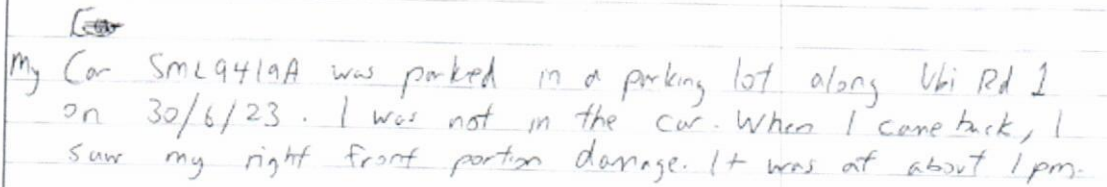 My Car SML9419A was parked in a parking lot along Ubi Rd 1
on 30/6/23. I was not in the car. When I came back, I
saw my right front portion damage. It was at about 1pm.